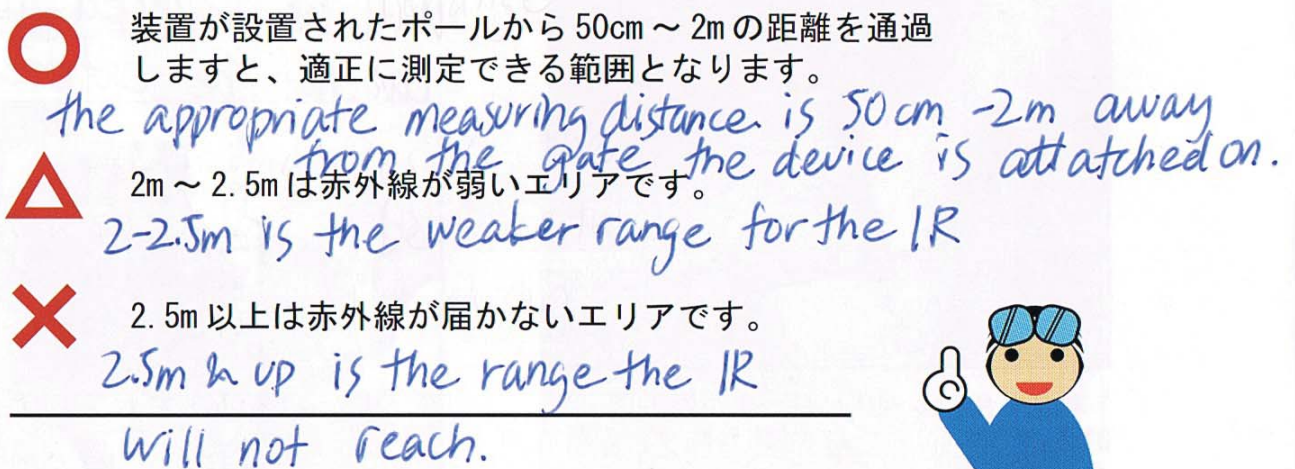 装置が設置されたポールから 50cm ～ 2m の距離を通過
しますと、適正に測定できる範囲となります。
the appropriate measuring distance is 50cm -2m away
from the gate the device is attatched on.
2m ～ 2.5m は赤外線が弱いエリアです。
2-2.5m is the weaker range for the IR
2.5m 以上は赤外線が届かないエリアです。
2.5m & up is the range the IR
will not reach.